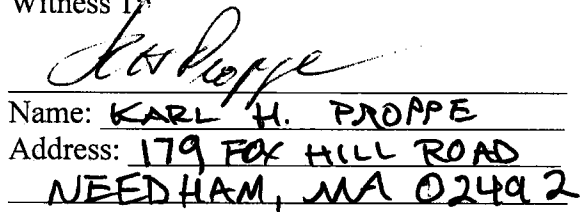 Witness 1:
KH Proppe
Name: KARL H. PROPPE
Address: 179 FOX HILL ROAD
NEEDHAM, MA 02492